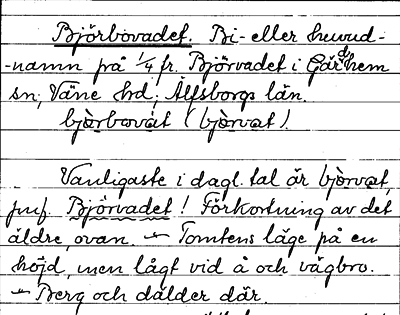 Björbovadet. Bi- eller huvud-
-namn på 1/4 fr. Björvadet i Gärdhem
sn, Väne hd, Älfsborgs län.
bjørbovat (bjørvat).
Vanligaste i dagl. tal är bjørvat,
jmf. Björvadet! Förkortning av det
äldre, ovan. - Tomtens läge på en
höjd, men lågt vid å och vägbro.
- Berg och dälder där.